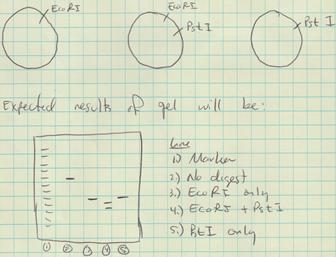 EcoRI
EcoRI
PstI
Pst I
Expected results of gel will be:
Lane
1) Marker
2.) No digest
3.) EcoRI only
4.) EcoRI + PstI
5.) PstI only
1 2 3 4 5